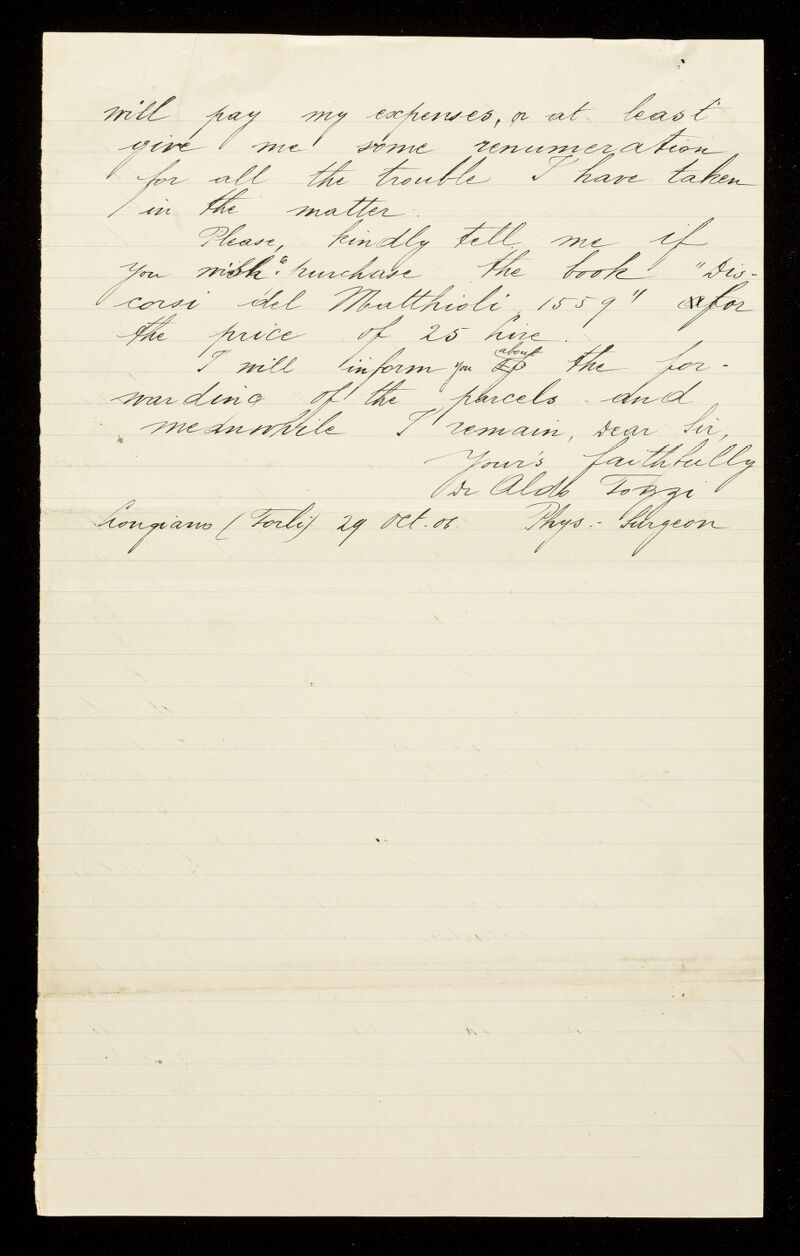 will pay my expenses, or at least
give me some renumeration
for all the trouble I have taken
in the matter.
Please, kindly tell me if
you wish to purchase the book "Dis-
corsi del Matthioli 1559" for
the price of 25 lire.
I will inform you about the for-
warding of the parcels and
meanwhile I remain, Dear Sir,
Your's faithfully
Dr Aldo Tozzi
Longiano (Forlì) 29 Oct. 06. Phys.- Surgeon